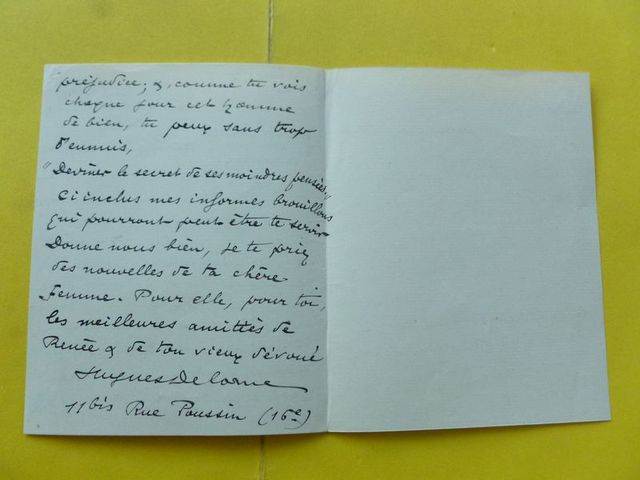 préjudice; &, comme tu vois
chaque jour cet homme
de bien, tu peux sans trop
d'ennuis,
"Deviner le secret de ses moindres pensées."
Ci inclus mes informes brouillons
qui pourront peut être te servir
Donne nous bien, je te prie,
des nouvelles de ta chère
femme. Pour elle, pour toi,
les meilleures amitiés de
Renée & de ton vieux dévoué
Hugues Delorme
11 bis Rue Poussin (16e)